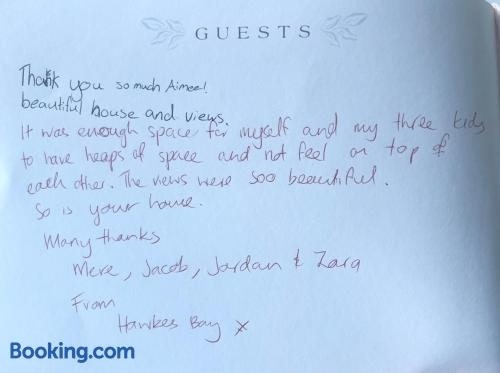 GUESTS
Thank you so much Aimee!
beautiful house and views.
It was enough space for myself and my three kids
to have heaps of space and not feel on top of
each other. The views were soo beautiful.
So is your house.
Many thanks
Mere, Jacob, Jordan & Zara
From
Hawkes Bay x
Booking.com